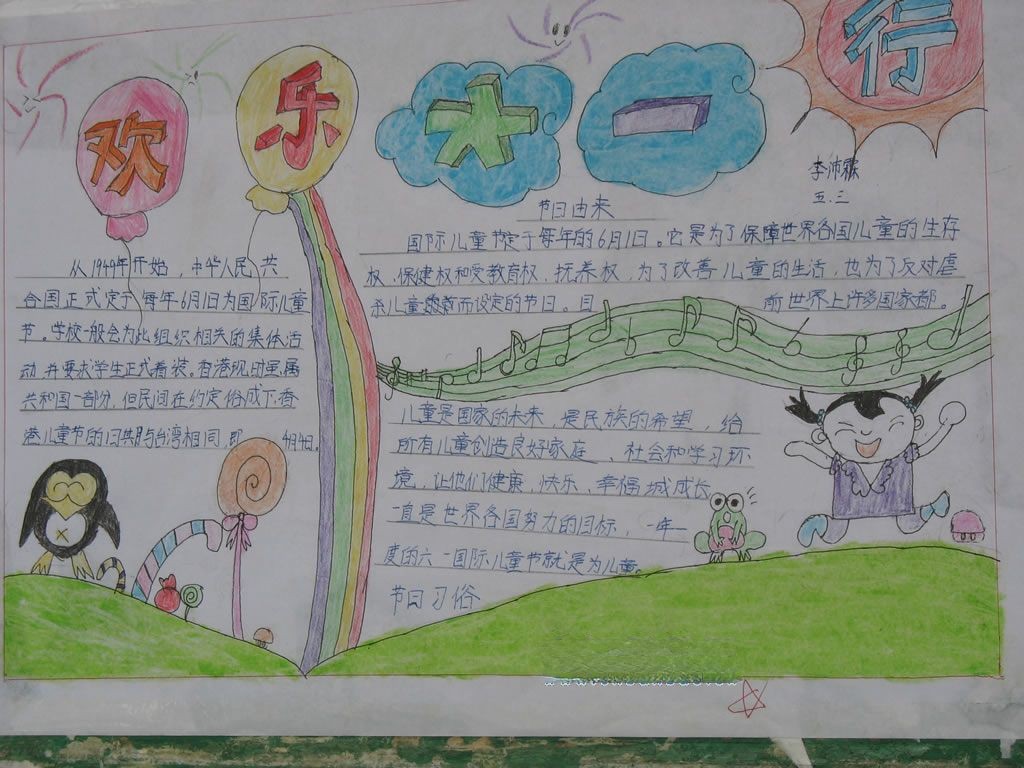 欢乐六一行
李沛霖
五.三
节日由来
国际儿童节定于每年的6月1日。它是为了保障世界各国儿童的生存
权、保健权和受教育权、抚养权,为了改善儿童的生活,也为了反对虐
杀儿童而设定的节日。目前世界上许多国家都。
从1949年开始,中华人民共
合国正式定于每年6月1日为国际儿童
节。学校一般会为此组织相关的集体活
动,并要求学生正式着装。香港现时虽属
共和国一部分,但民间在约定俗成下,香
港儿童节的日期与台湾相同,即4月4日。
儿童是国家的未来,是民族的希望,给
所有儿童创造良好家庭、社会和学习环
境,让他们健康、快乐、幸福城成长
一直是世界各国努力的目标,一年一
度的六一国际儿童节就是为儿童
节日习俗